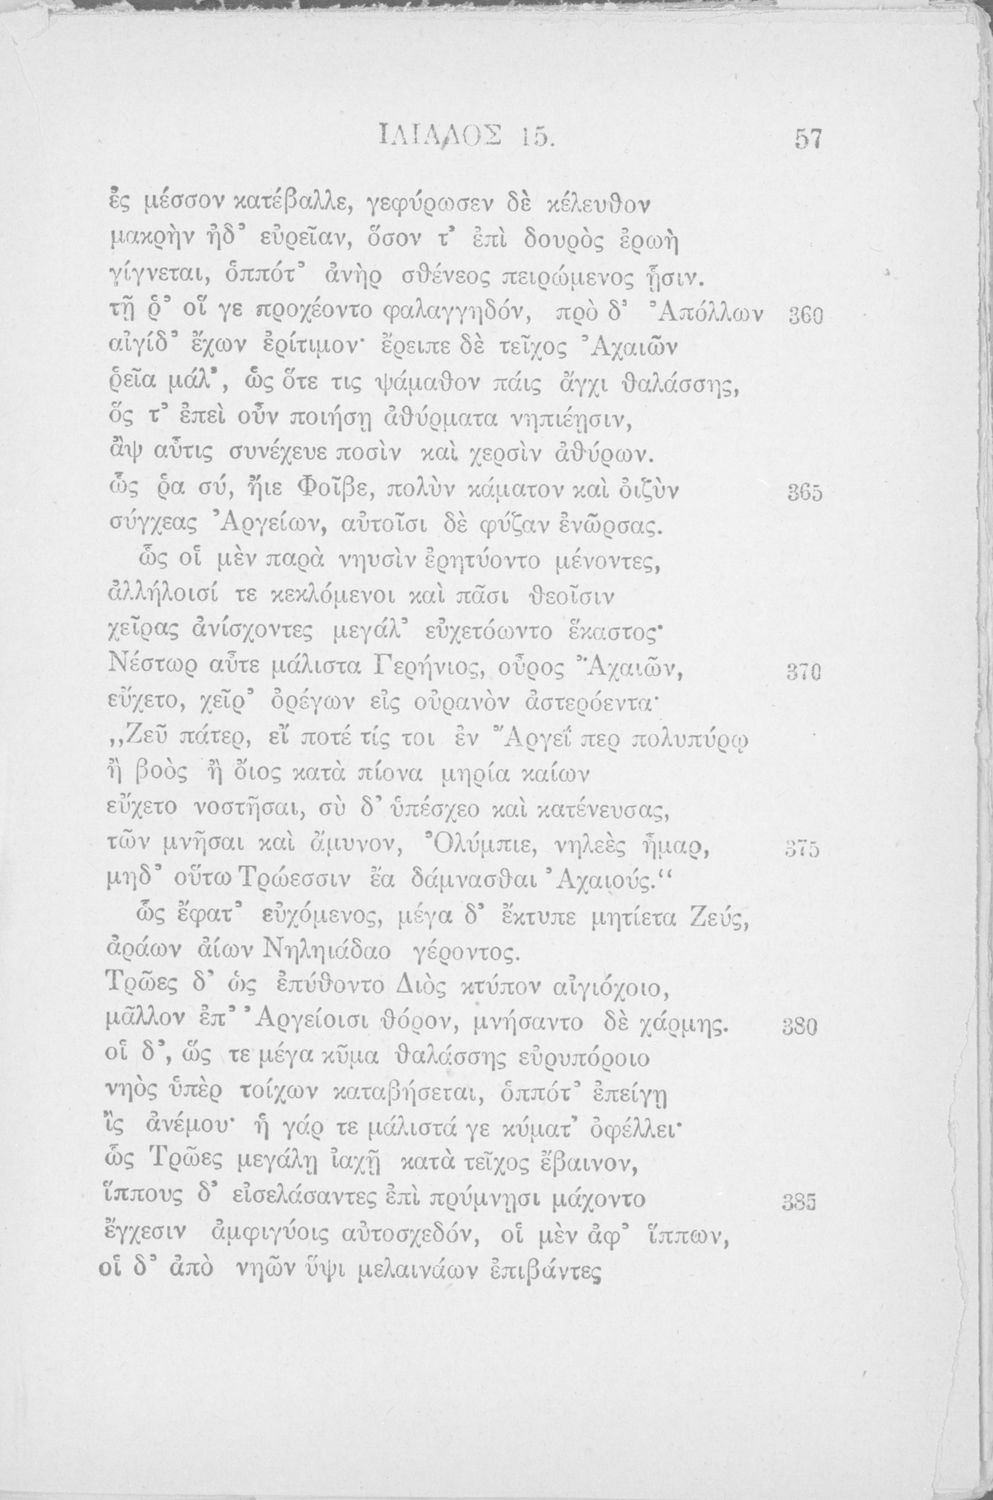 ΙΛΙΑΔΟΣ 15. 57
ἐς μέσσον κατέβαλλε, γεφύρωσεν δὲ κέλευθον
μακρὴν ἠδ’ εὐρεῖαν, ὅσον τ’ ἐπὶ δουρὸς ἐρωὴ
γίγνεται, ὁππότ’ ἀνὴρ σθένεος πειρώμενος ᾗσιν.
τῇ ῥ’ οἵ γε προχέοντο φαλαγγηδόν, πρὸ δ’ Ἀπόλλων 360
αἰγίδ’ ἔχων ἐρίτιμον· ἔρειπε δὲ τεῖχος Ἀχαιῶν
ῥεῖα μάλ’, ὡς ὅτε τις ψάμαθον πάις ἄγχι θαλάσσης,
ὅς τ’ ἐπεὶ οὖν ποιήσῃ ἀθύρματα νηπιέῃσιν,
ἂψ αὖτις συνέχευε ποσὶν καὶ χερσὶν ἀθύρων.
ὥς ῥα σύ, ἤιε Φοῖβε, πολὺν κάματον καὶ ὀιζὺν 365
σύγχεας Ἀργείων, αὐτοῖσι δὲ φύζαν ἐνῶρσας.
ὣς οἱ μὲν παρὰ νηυσὶν ἐρητύοντο μένοντες,
ἀλλήλοισί τε κεκλόμενοι καὶ πᾶσι θεοῖσιν
χεῖρας ἀνίσχοντες μεγάλ’ εὐχετόωντο ἕκαστος·
Νέστωρ αὖτε μάλιστα Γερήνιος, οὖρος Ἀχαιῶν, 370
εὔχετο, χεῖρ’ ὀρέγων εἰς οὐρανὸν ἀστερόεντα·
„Ζεῦ πάτερ, εἴ ποτέ τίς τοι ἐν Ἄργεΐ περ πολυπύρῳ
ἢ βοὸς ἢ ὄιος κατὰ πίονα μηρία καίων
εὔχετο νοστῆσαι, σὺ δ’ ὑπέσχεο καὶ κατένευσας,
τῶν μνῆσαι καὶ ἄμυνον, Ὀλύμπιε, νηλεὲς ἦμαρ, 375
μηδ’ οὕτω Τρώεσσιν ἔα δάμνασθαι Ἀχαιούς.“
ὣς ἔφατ’ εὐχόμενος, μέγα δ’ ἔκτυπε μητίετα Ζεύς,
ἀράων ἀίων Νηληιάδαο γέροντος.
Τρῶες δ’ ὡς ἐπύθοντο Διὸς κτύπον αἰγιόχοιο,
μᾶλλον ἐπ’ Ἀργείοισι θόρον, μνήσαντο δὲ χάρμης. 380
οἱ δ’, ὥς τε μέγα κῦμα θαλάσσης εὐρυπόροιο
νηὸς ὑπὲρ τοίχων καταβήσεται, ὁππότ’ ἐπείγῃ
ἲς ἀνέμου· ἡ γάρ τε μάλιστά γε κύματ’ ὀφέλλει·
ὣς Τρῶες μεγάλῃ ἰαχῇ κατὰ τεῖχος ἔβαινον,
ἵππους δ’ εἰσελάσαντες ἐπὶ πρύμνῃσι μάχοντο 385
ἔγχεσιν ἀμφιγύοις αὐτοσχεδόν, οἱ μὲν ἀφ’ ἵππων,
οἱ δ’ ἀπὸ νηῶν ὕψι μελαινάων ἐπιβάντες